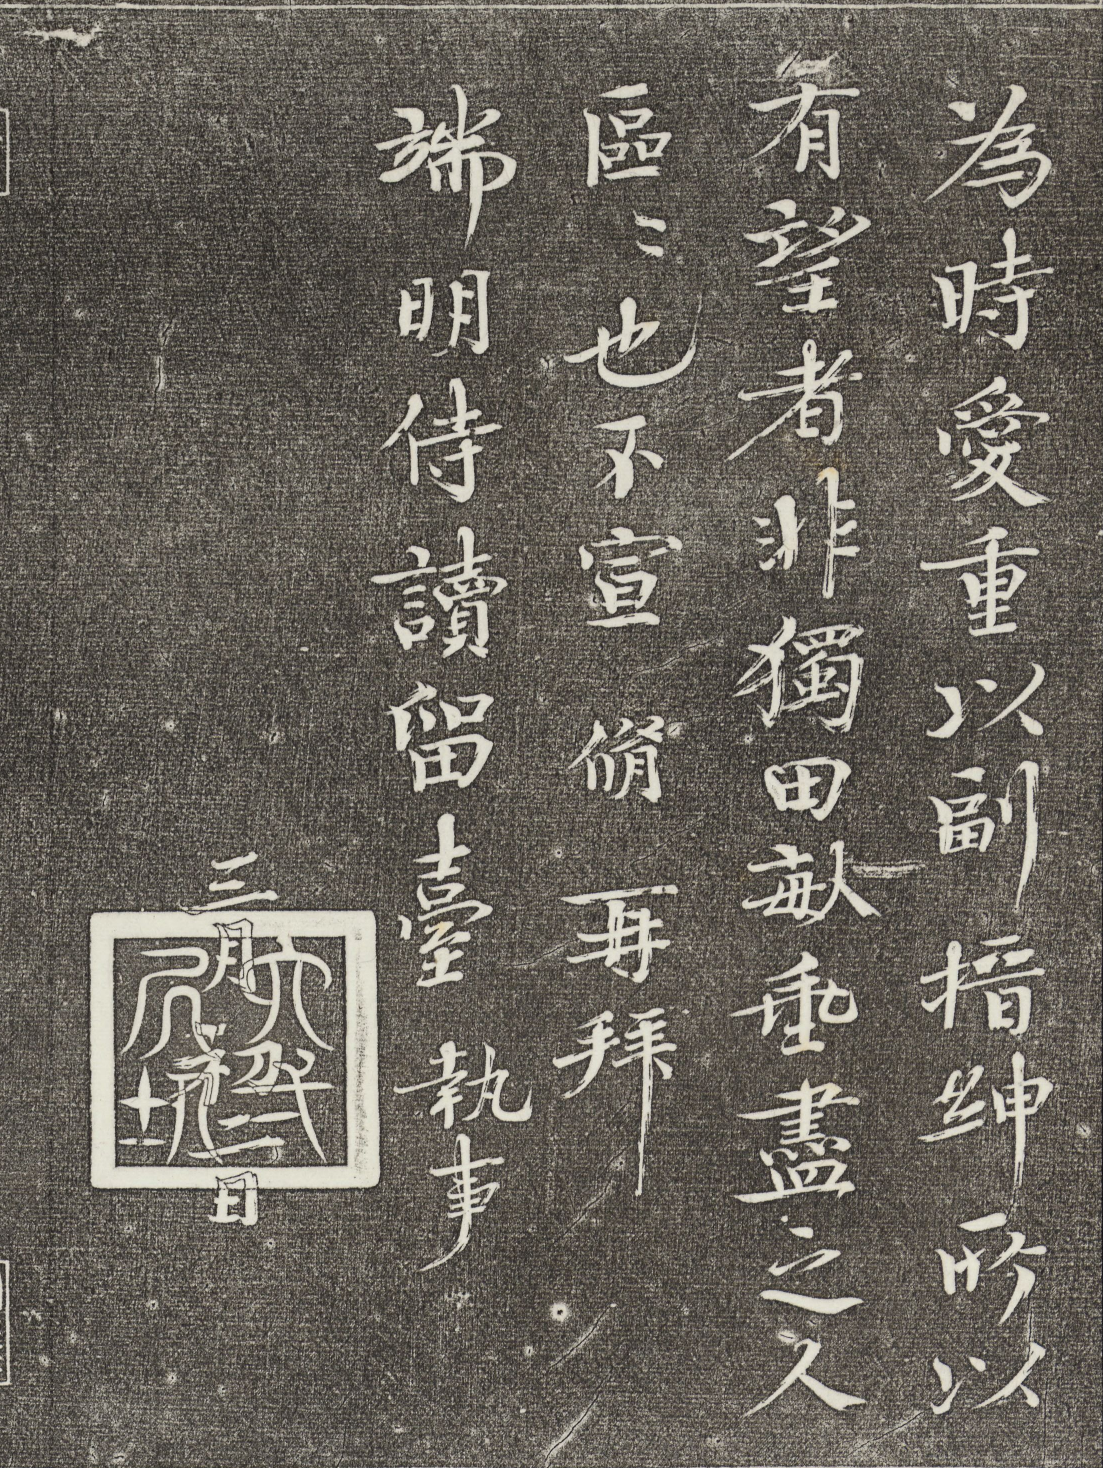 為時愛重以副搢紳所以
有望者非獨田畝垂盡之人
區〻也不宣 脩 再拜
端明侍讀留臺 執事
三月初二日
六一